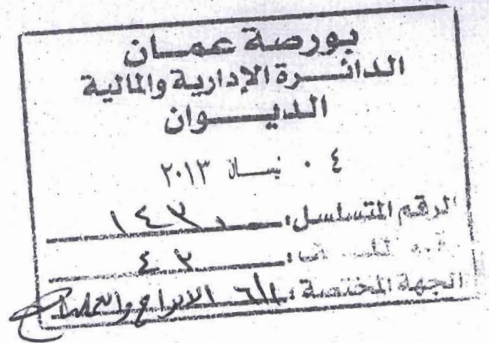 بورصة عمان
الدائرة الإدارية والمالية
الديوان
٠٤ نيسان ٢٠١٣
الرقم المتسلسل:
رقم الملف: ٤٢
الجهة المختصة: الادراج والعمليات